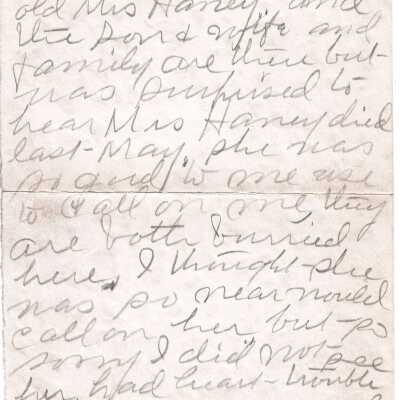 old Mrs Haney and
the son & wife and
family are there but
was surprised to
hear Mrs Haney died
last May, she was
so good to me use
to call on me, they
are both burried
here, I thought she
was so near would
call on her but so
sorry I did not see
her, had heart trouble